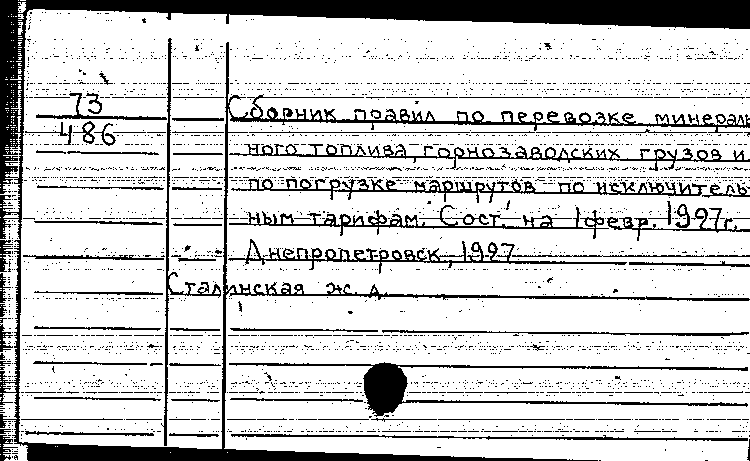 73
486
Сборник правил по перевозке минераль
ного топлива, горнозаводских грузов и
по погрузке маршрутов по исключитель
ным тарифам. Сост. на 1 февр. 1927г.
Днепропетровск, 1927
Сталинская ж. д.